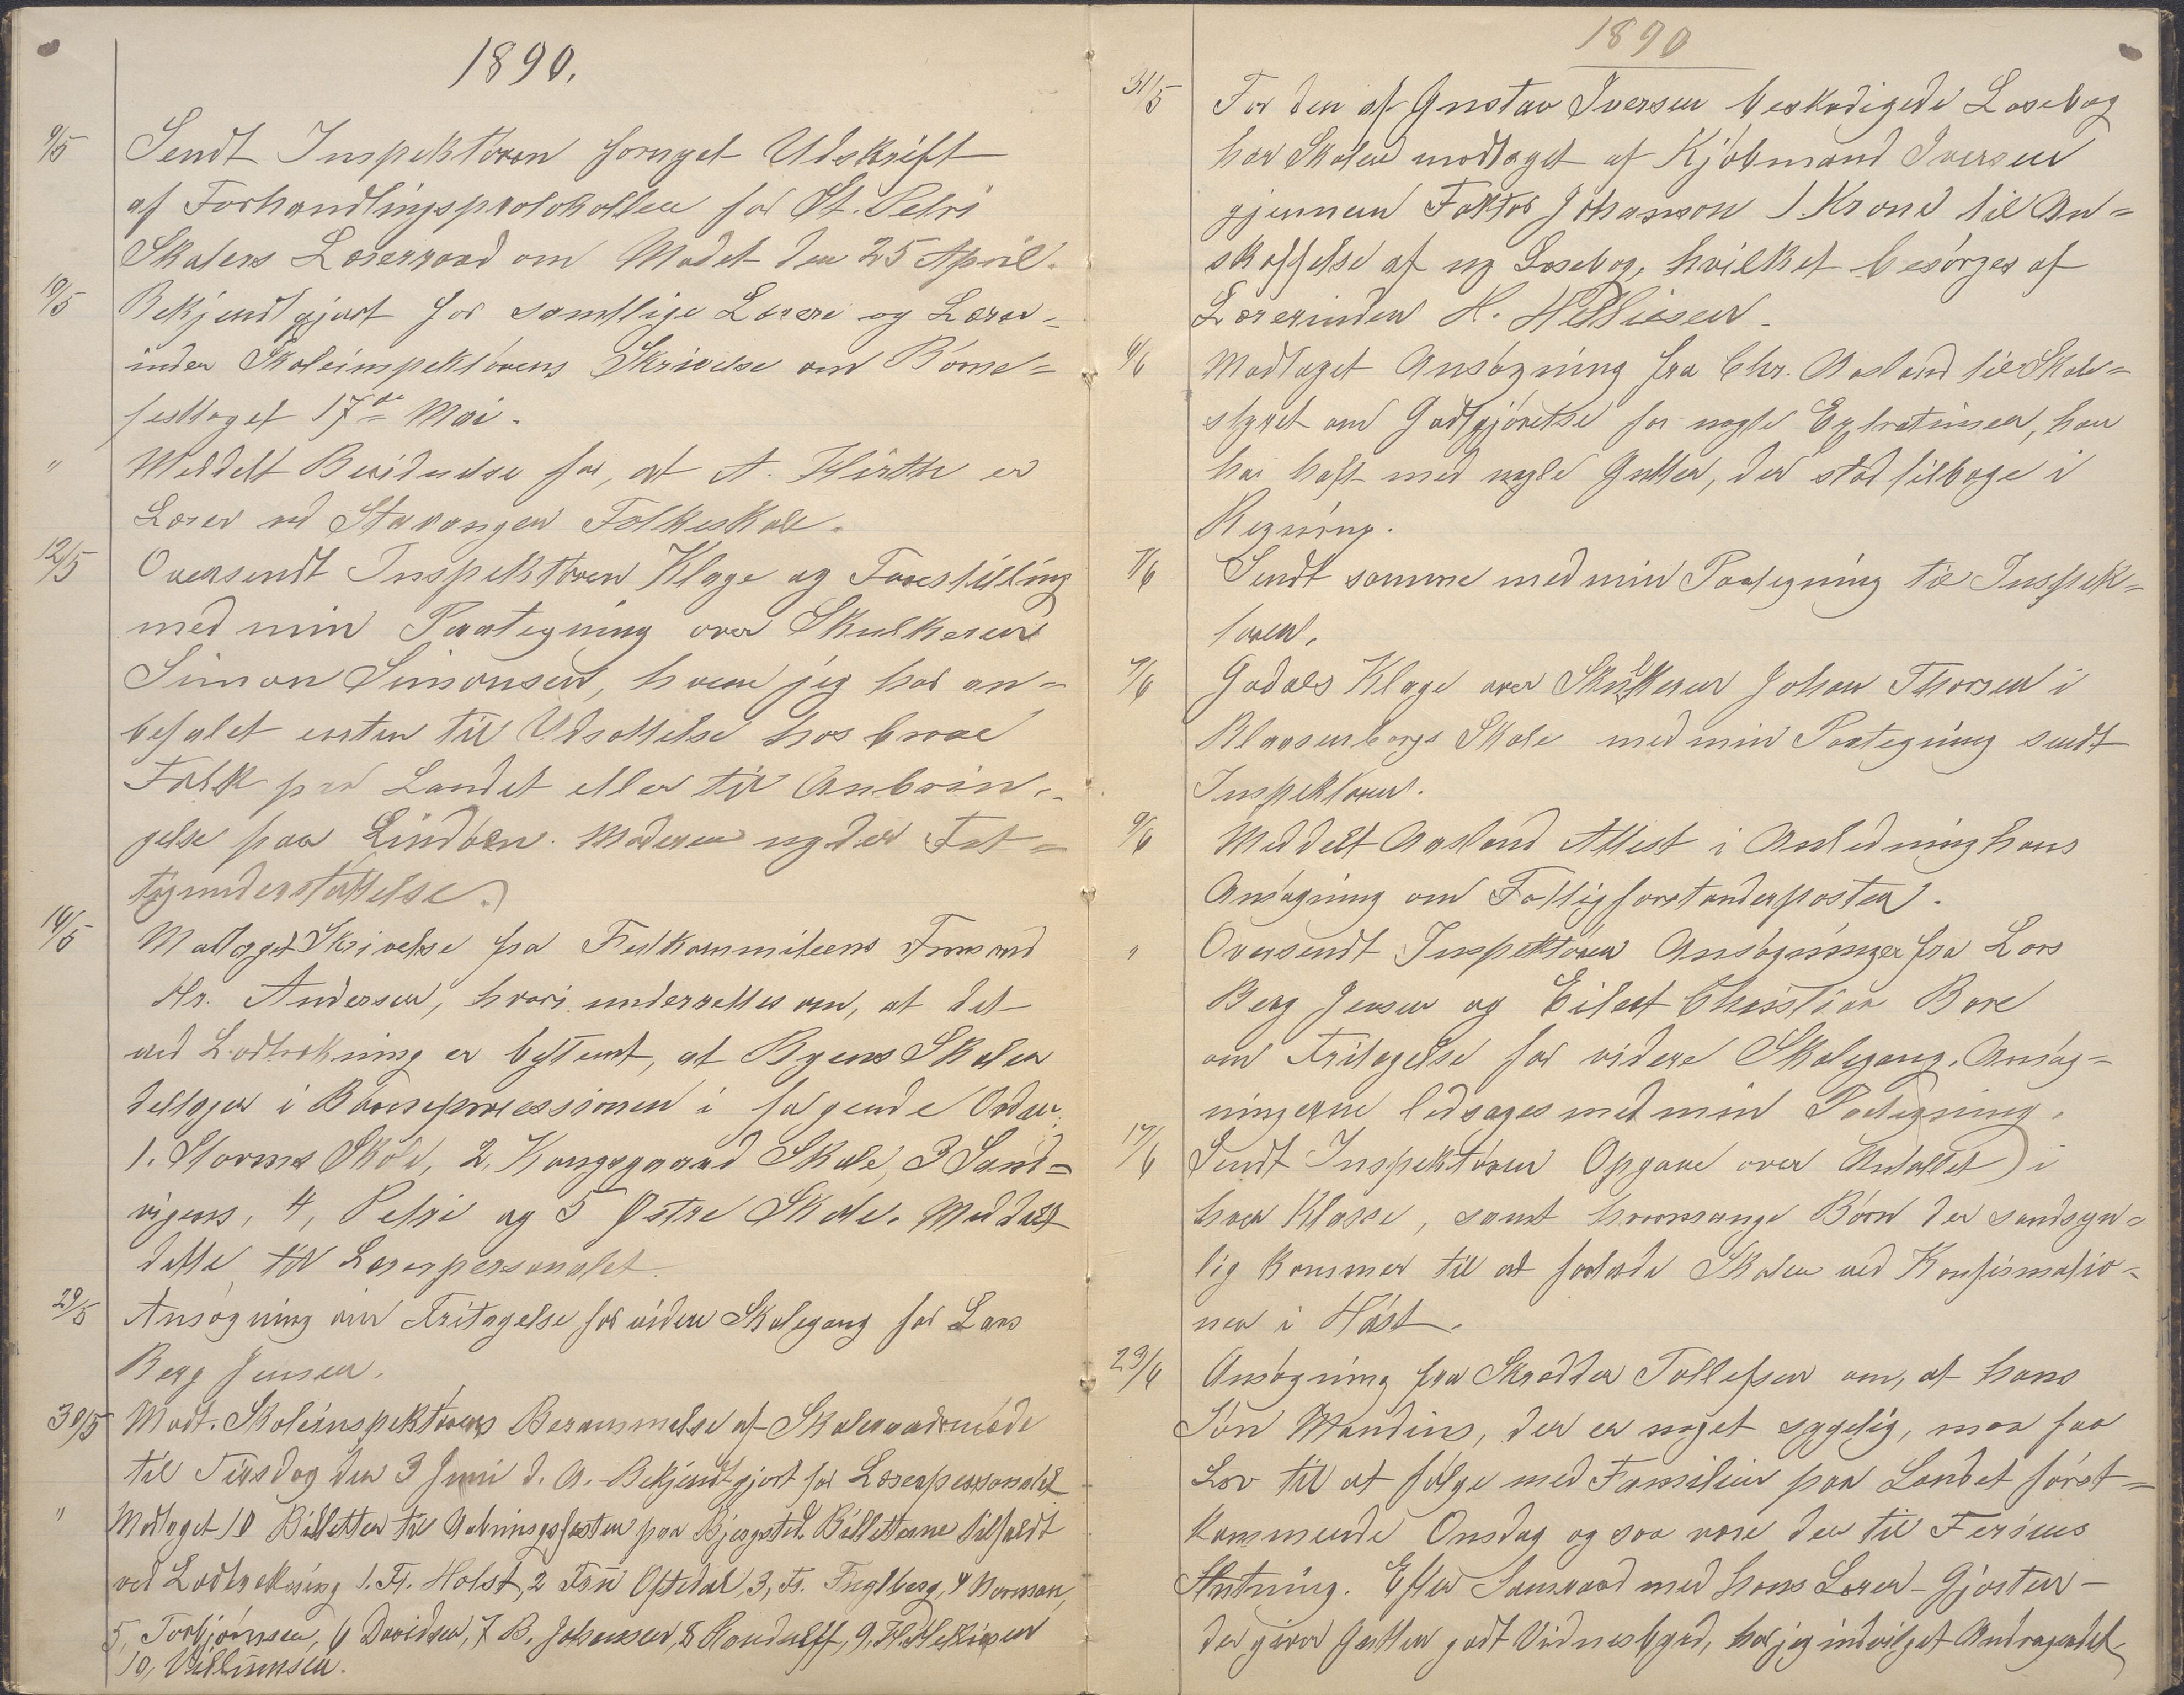 1890.
9/5 Sendt Inspektøren fornyet Udskrift
af Forhandlingsprotokollen for St. Petri
Skoles Lærerraad om Mødet den 25 April.
10/5 Bekjendtgjort for samtlige Lærere og Lærer-
inder Skoleinspektørens Skrivelse om Børne-
festtoget 17de Mai.
" Meddelt Bevidnelse for, at A. Hirth er
Lærer ved Stavanger Folkeskole.
12/5 Oversendt Inspektøren Klage og Forestilling
med min Paategning over Skulkeren
Simon Simonsen, hvem jeg har an-
befalet enten til Udsættelse hos brave
Folk paa Landet eller til Anbrin-
gelse paa Lindøen. Moderen nyder Fat-
tigunderstøttelse.
14/5 Modtaget Skrivelse fra Festkommiteens Formand
Hr. Andersen, hvori underrettes om, at det
ved Lodtrækning er bestemt, at Byens Skoler
deltager i Børneprocessionen i følgende Orden:
1. Storms Skole, 2. Kongsgaard Skole, 3 Sand-
vigens, 4, Petri og 5 Østre Skole. Meddelt
dette til Lærerpersonalet.
29/5 Ansøgning om Fritagelse for videre Skolegang for Lars
Berg Jensen.
30/5 Modt. Skoleinspektørens Berammelse af Skoleraadsmøde
til Tirsdag den 3 Juni d. A. Bekjendtgjort for Lærerpersonalet
" Modtaget 10 Billetter til Aabningsfesten paa Bjergsted. Billetterne tilfaldt
ved Lodtrækning 1. Fr. Holst, 2 Frn Oftedal, 3, Fr. Fuglberg, 4 Normann,
5, Torbjørnsen, 6 Davidsen, 7 B. Johansen, 8 Randulff, 9, H. Helliesen
10, Villumsen.
1890
31/5 For den af Gustav Iversen beskadigede Læsebog
har Skolen modtaget af Kjøbmand Iversen
gjennem Faktor Johanson 1 Krone til An-
skaffelse af ny Læsebog, hvilket besørges af
Lærerinden H. Helliesen.
4/6 Modtaget Ansøgning fra Chr. Aasland til Skole-
styret om Godtgjørelse for nogle Extratimer, han
har haft med nogle Gutter, der stod tilbage i
Regning.
7/6 Sendt samme med min Paategning til Inspek-
tøren.
7/6 Godals Klage over Skulkeren Johan Thorsen i
Blaasenborgs Skole med min Paategning sendt
Inspektøren.
9/6 Meddelt Aasland Attest i Anledning hans
Ansøgning om Fattigforstanderposten.
" Oversendt Inspektøren Ansøgninger fra Lars
Berg Jensen og Eilert Christian Bore
om Fritagelse for videre Skolegang. Ansøg-
ningerne ledsages med min Paategning.
17/6 Sendt Inspektøren Opgave over Antallet i
hver Klasse, samt hvormange Børn der sandsyn-
lig kommer til at forlade Skolen ved Konfirmatio-
nen i Høst.
23/6 Ansøgning fra Skrædder Tollefsen om, at hans
Søn Mandius, der er noget sygelig, maa faa
Lov til at følge med Familien paa Landet først-
kommende Onsdag og saa være der til Feriens
Slutning. Efter Samraad med hans Lærer - Gjøsten -
der giver Gutten godt Vidnesbyrd, har jeg indvilget Andragendet.